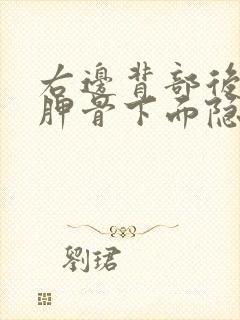 右邊背部後
胛骨下面隐
劉珺